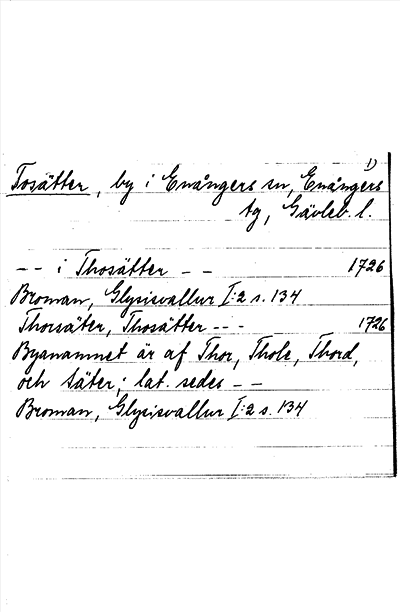 1)
Tosätter, by i Enångers sn, Enångers
tg, Gävleb. l.
-- i Thosätter -- 1726
Broman, Glysisvallur I:2 s. 134
Thorsäter, Thosätter --- 1726
Byanamnet är af Thor, Thole, Thord,
och säter; lat. sedes --
Broman, Glysisvallur I:2 s. 134